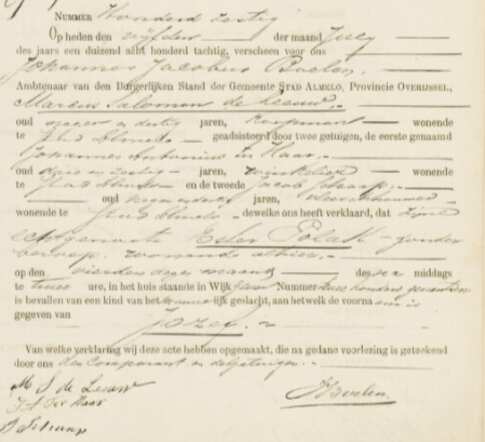 NUMMER Honderd zestig
Op heden den vijfden der maand July
des jaars een duizend acht honderd tachtig, verscheen voor ons
Johannes Jacobus Boelen.
Ambtenaar van den Burgerlijken Stand der Gemeente STAD ALMELO, Provincie OVERIJSSEL,
Marcus Salomon de Leeuw.
oud negen en dertig jaren, koopman wonende
te Stad Almelo geadsisteerd door twee getuigen, de eerste genaamd
Johannes Antonius ter Haar
oud en zestig jaren, wonende
te Stad Almelo en de tweede Jacob Schaap
oud jaren, wonende
wonende te Stad Almelo dewelke ons heeft verklaard, dat zijne
echtgenoote Ester Polak zonder
beroep, wonende alhier.
op den vierden dezer maand des middags
te twee ure, in het huis staande in Wijk Nummer twee honderd
is bevallen van een kind van het geslacht, aan hetwelk de voorna
gegeven van
Jozef.
Van welke verklaring wij deze acte hebben opgemaakt, die na gedane voorlezing is geteekend
door ons den Comparant en de getuigen.
M S de Leeuw
J A ter Haar
J Schaap
JJBoelen